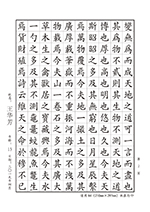 變無為而成天地之道可一言而盡也
其為物不貳則其生物不測天地之道
博也厚也高也明也悠也久也今夫天
斯昭昭之多及其無窮也日月星辰繫
焉萬物覆焉今夫地一撮土之多及其
廣厚載華嶽而不重振河海而不洩萬
物載焉今夫山一卷石之多及其廣大
草木生之禽獸居之寶藏興焉今夫水
一勺之多及其不測黿鼉蛟龍魚鱉生
焉貨財殖焉詩云維天之命於穆不已
姓名：王华芳